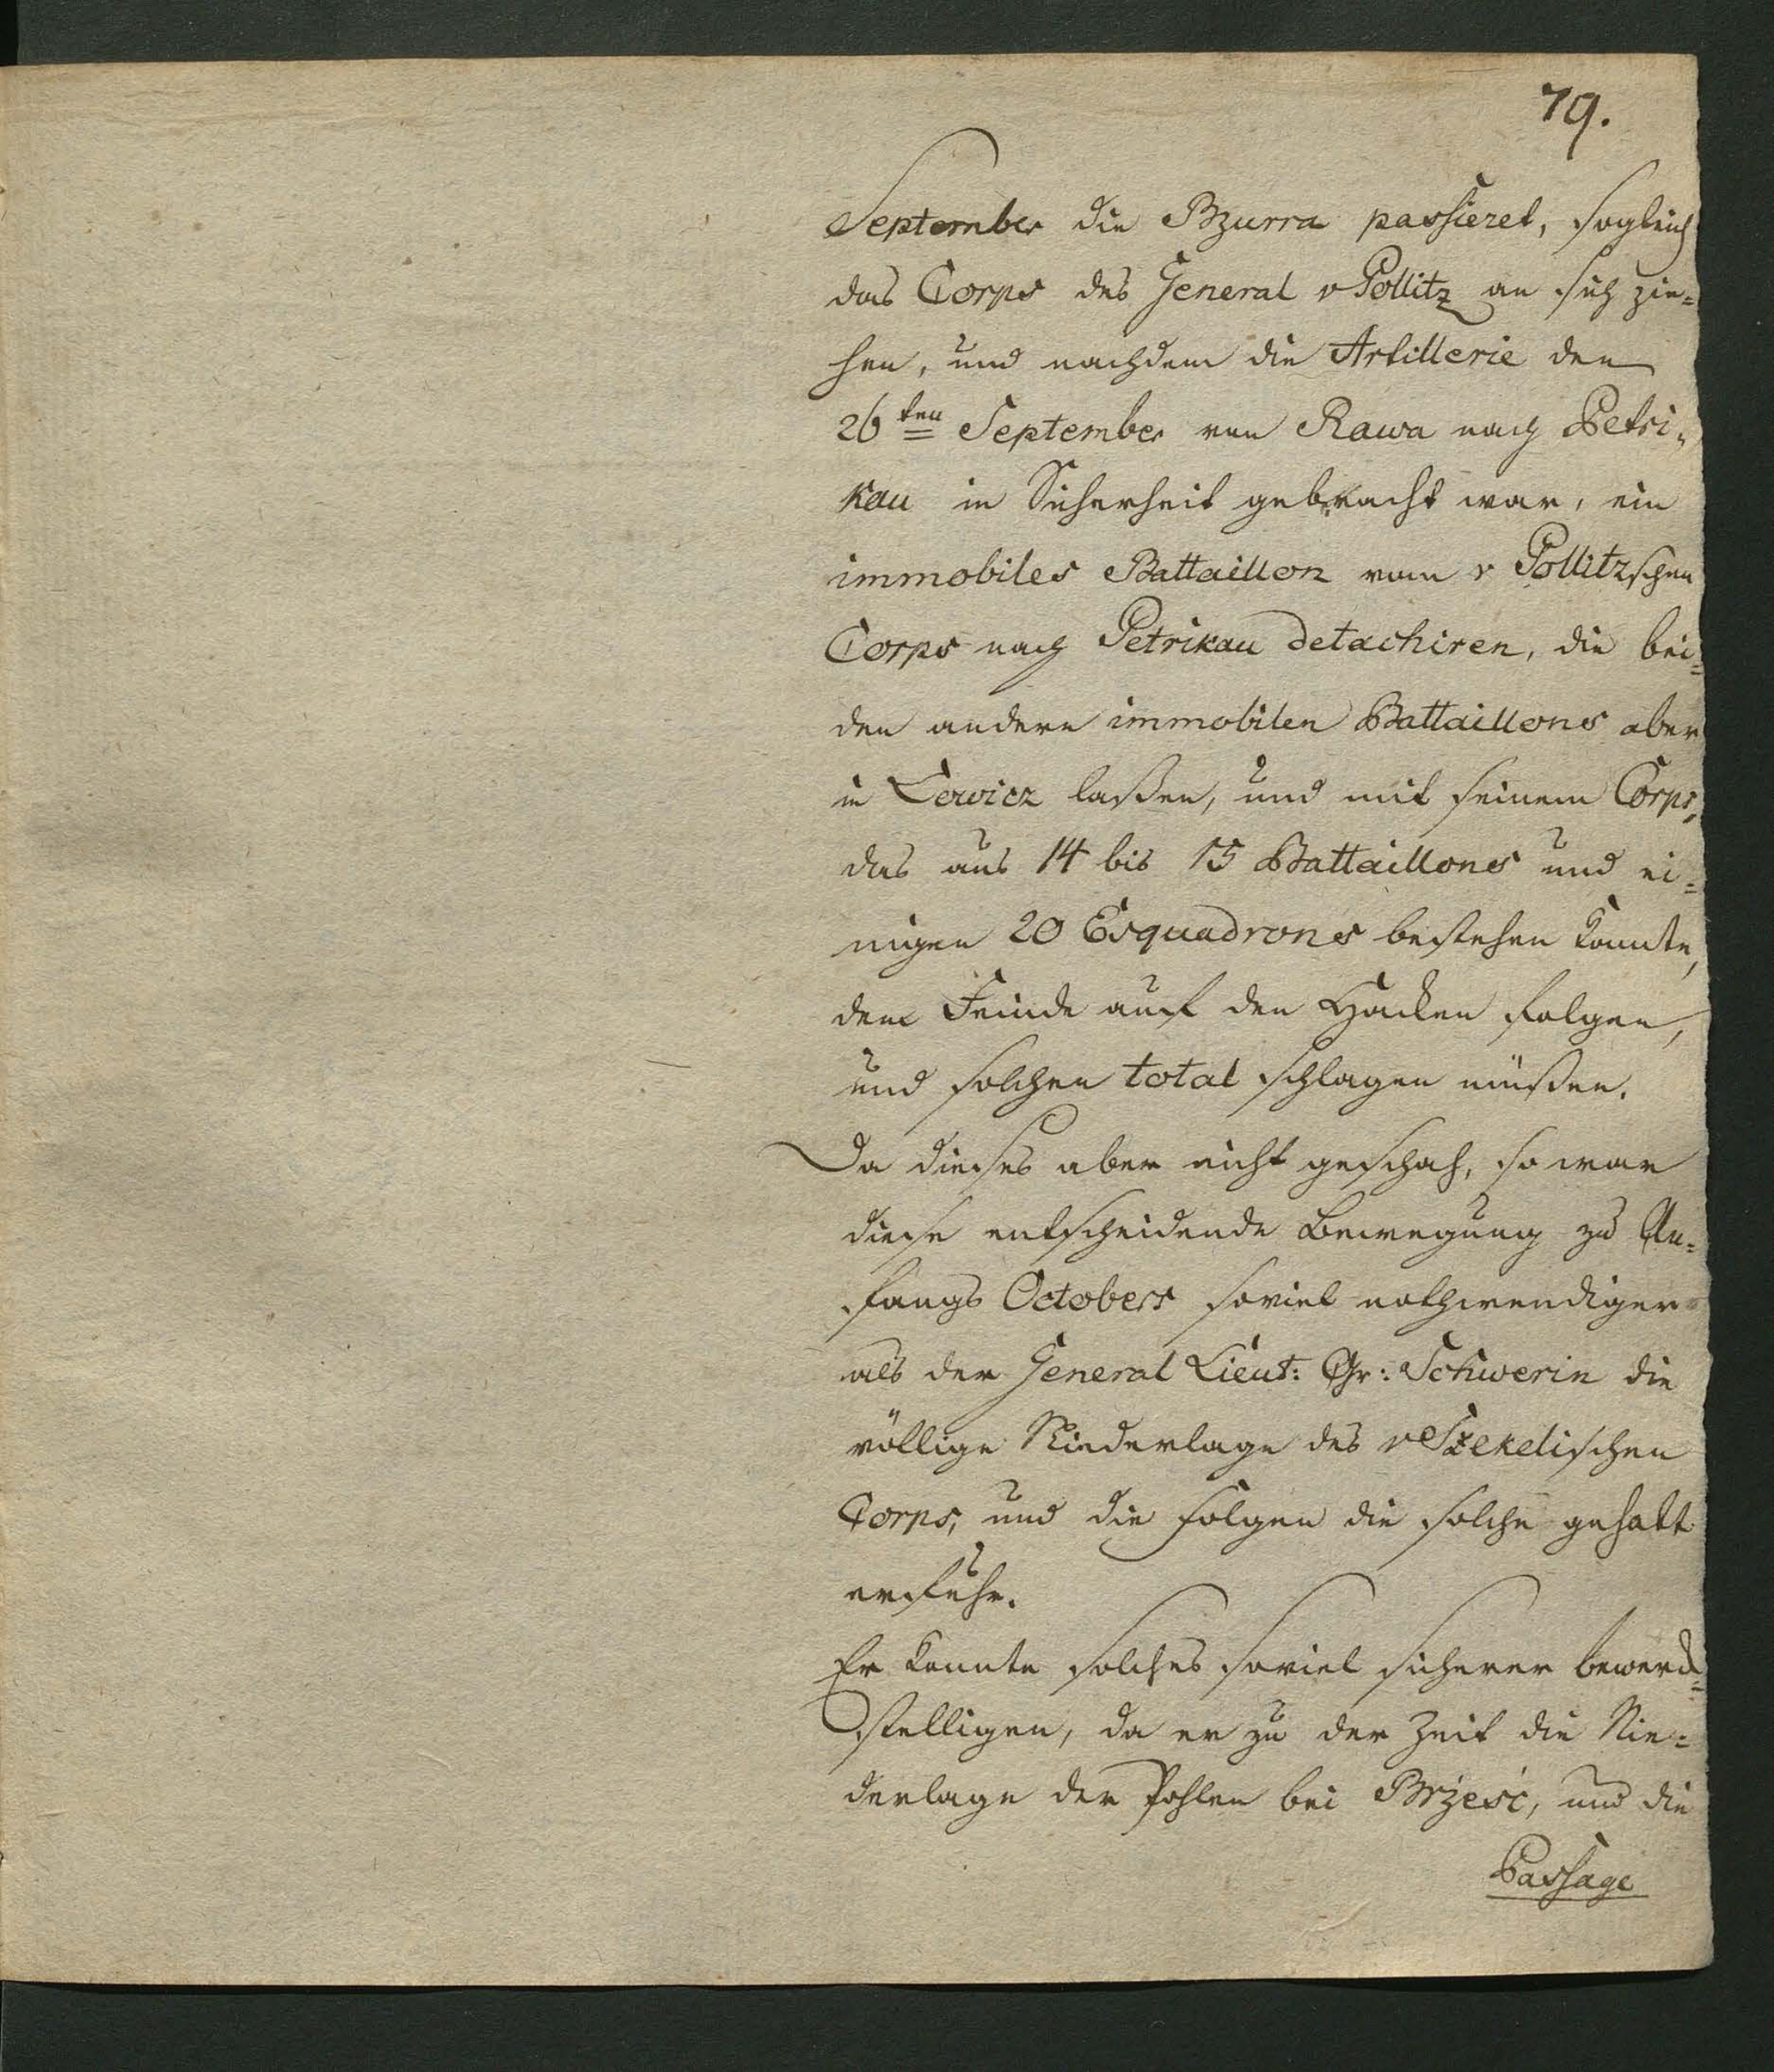 79.
September die Bzurra passieret, sogleich
das Corps des General v Pollitz an sich zie=
hen, und nachdem die Artillerie den
26ten September von Rawa nach Petri=
kau in Sicherheit gebracht war, ein
immobiles Battaillon vom v Pollitzschen
Corps nach Petrikau detachiren, die bei=
den andern immobilen Battaillons aber
in Lowicz laßen, und mit seinem Corps,
das aus 14 bis 15 Battaillons und ei=
nigen 20 Esquadrons bestehen konnte,
dem Feinde auf den Hacken folgen,
und solchen total schlagen müßen.
Da dieses aber nicht geschah, so war
diese entscheidende Bewegung zu An=
fangs Octobers soviel nothwendiger
als der General Lieut: Gr: Schwerin die
völlige Niederlage des v Szekelischen
Corps, und die Folgen die solche gehabt
erfuhr.
Er konnte solches soviel sicherer bewerck=
stelligen, da er zu der Zeit die Nie=
derlage der Pohlen bei Brzesć, und die
Passage